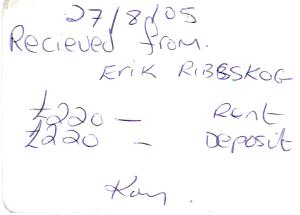 27/8/05
Recieved from.
Erik RIBSSKOG
£220 — Rent
£220 — Deposit
Kay.